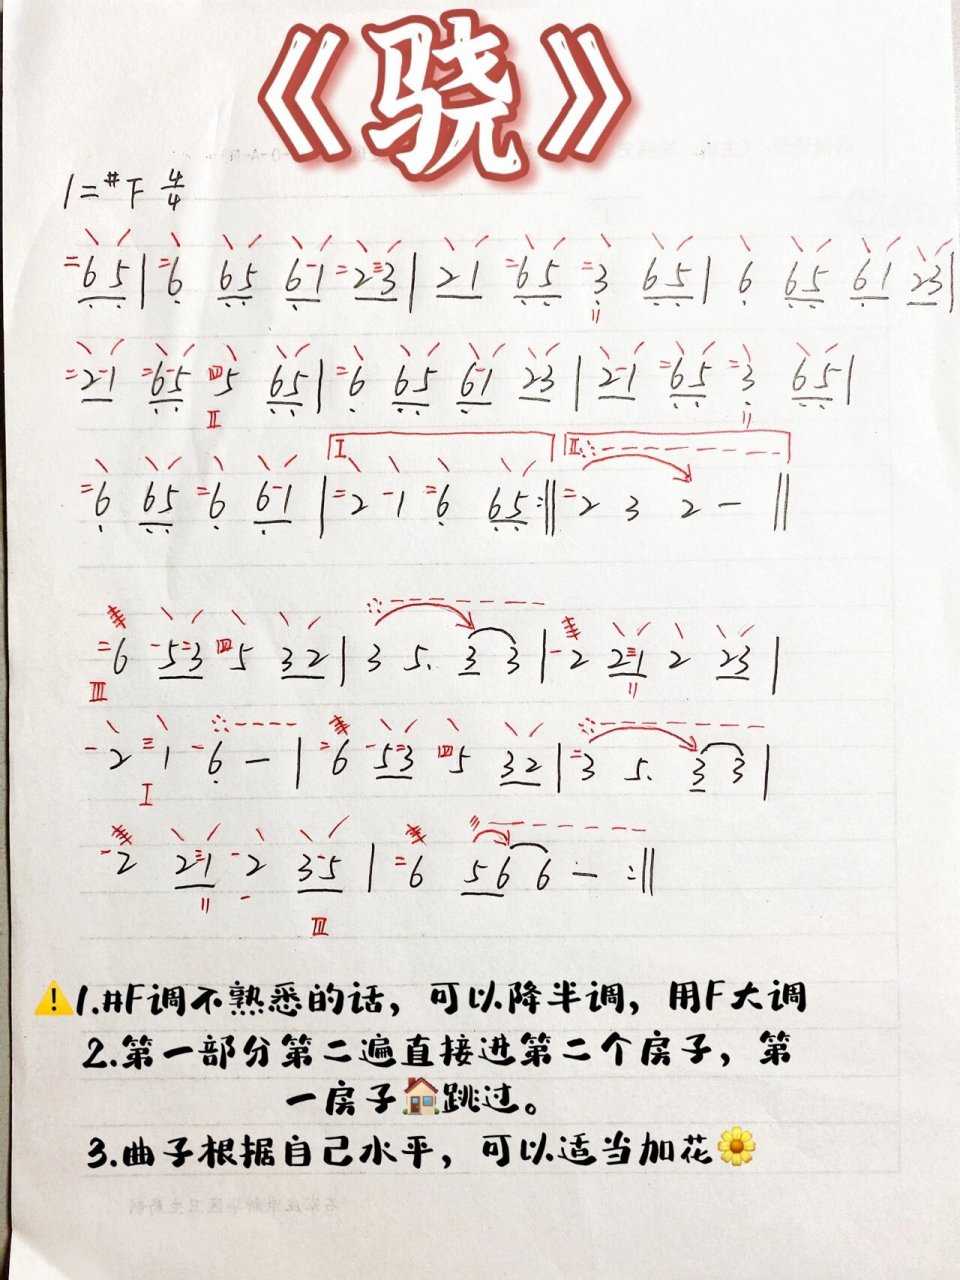 《骁》
1=#F 4/4
65 | 6 65 61 23 | 21 65 3 65 | 6 65 61 23 |
21 65 5 65 | 6 65 61 23 | 21 65 3 65 |
I II
6 65 6 61 | 2 1 6 65 :|| 2 3 2 — ||
6 53 5 32 | 3 5. 3 3 | 2 21 2 23 |
2 1 6 — | 6 53 5 32 | 3 5. 3 3 |
2 21 2 35 | 6 56 6 — :||
⚠️1.#F调不熟悉的话，可以降半调，用F大调
2.第一部分第二遍直接进第二个房子，第
一房子🏠跳过。
3.曲子根据自己水平，可以适当加花🌼